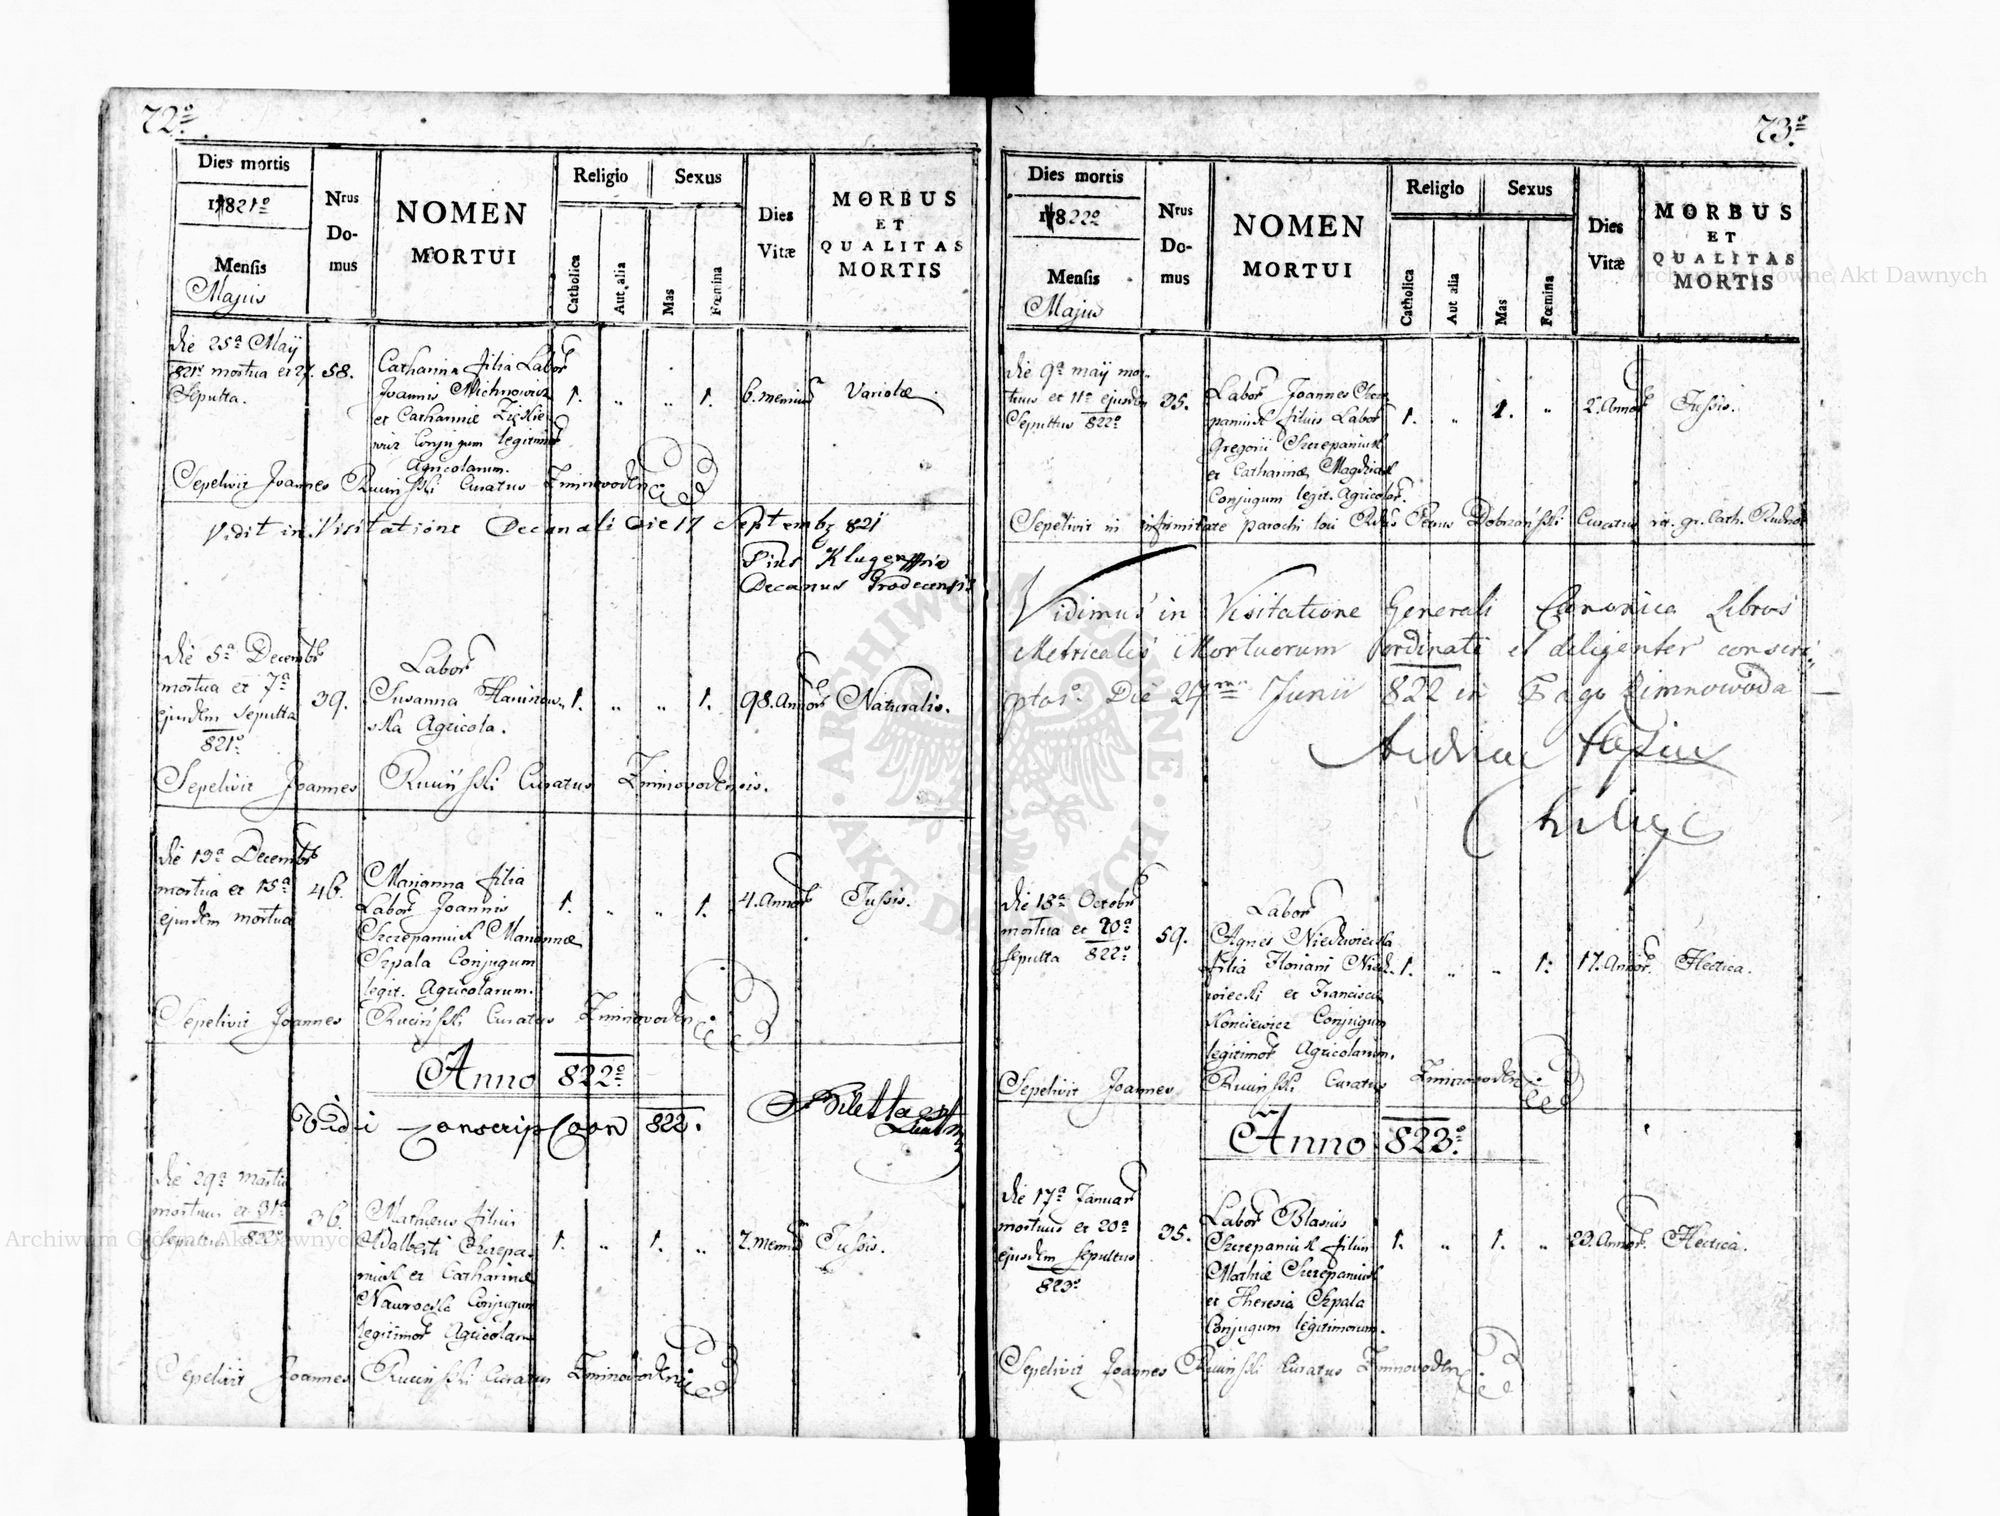 72º
Dies mortis
1821º
Mensis
Majus
Nrus
Do-
mus
NOMEN
MORTUI
Religio
Catholica
Aut alia
Sexus
Mas
Fœmina
Dies
Vitæ
MORBUS
ET
QUALITAS
MORTIS
die 25ª Maÿ
821º mortua et 27.
Sepulta.
58.
Catharina filia Labor
Joannis Michnowicz
et Catharinæ
Conjugum legitimor
Agricolarum.
1. „ „ 1.
6. mensium
Variolæ
Sepelivit Joannes Ruciński Curatus Zimnovoden
Vidit in Visitatione Decanali die 17 Septembr 821
Pius Kluger
Decanus Grodecensis
die 5ª Decembr
mortua et 7ª
ejusdem sepulta
821º
39.
Labor
Susanna Haninow-
ska Agricola.
1. „ „ 1.
98. Annor
Naturalis.
Sepelivit Joannes Ruciński Curatus Zimnovodensis.
die 13ª Decembr
mortua et 15ª
ejusdem mortua
46.
Marianna filia
Labor Joannis
Szczepaniuk Mariannæ
Szpala Conjugum
legit. Agricolarum.
1. „ „ 1.
4. Annor
Tussis.
Sepelivit Joannes Ruciński Curatus Zimnovoden
Anno 822º
Vidi 822.
die 29ª Martii
mortuus et 31ª
sepultus 822º
36.
Mathæus filius
Adalberti Szczepa-
niuk et Catharinæ
Nawrocka Conjugum
legitimor Agricolarum
1. „ 1. „
7. mensiu
Tussis.
Sepelivit Joannes Ruciński Curatus Zimnovoden
73º
Dies mortis
1822º
Mensis
Majus
Nrus
Do-
mus
NOMEN
MORTUI
Religio
Catholica
Aut alia
Sexus
Mas
Fœmina
Dies
Vitæ
MORBUS
ET
QUALITAS
MORTIS
die 9ª maÿ mor-
tuus et 11ª ejusdem
Sepultus 822º
35.
Labor Joannes Szcze-
paniuk filius Labor
Gregorii Szczepaniuk
et Catharinæ Magdziak
Conjugum legit. Agricolar.
1. „ 1. „
2. Annor
Tussis.
Sepelivit in infirmitate parochi loci Petrus Dobrzański Curatus rit. gr. Cath.
Vidimus in Visitatione Generali Canonica Libros
Metricales Mortuorum ordinate et diligenter conscri-
ptos. Die Junii 822 in Zimnowoda
die 18ª Octobr
mortua et 20ª
sepulta 822º
59.
Labor
Agnes Niedzwiecka
filia Floriani Niedz-
wiecki et Francisca
Konciewicz Conjugum
legitimor Agricolarum.
1. „ „ 1.
17. Annor.
Hectica.
Sepelivit Joannes Ruciński Curatus Zimnovoden
Anno 823º
die 17ª Januar
mortuus et 20ª
ejusdem sepultus
823º
35.
Labor Blasius
Szczepaniuk filius
Mathiæ Szczepaniuk
et Theresia Szpala
Conjugum legitimorum.
1. „ 1. „
23. Annor.
Hectica.
Sepelivit Joannes Ruciński Curatus Zimnovoden
Archiwum Główne Akt Dawnych
Archiwum Główne Akt Dawnych
ARCHIWUM GŁÓWNE AKT DAWNYCH